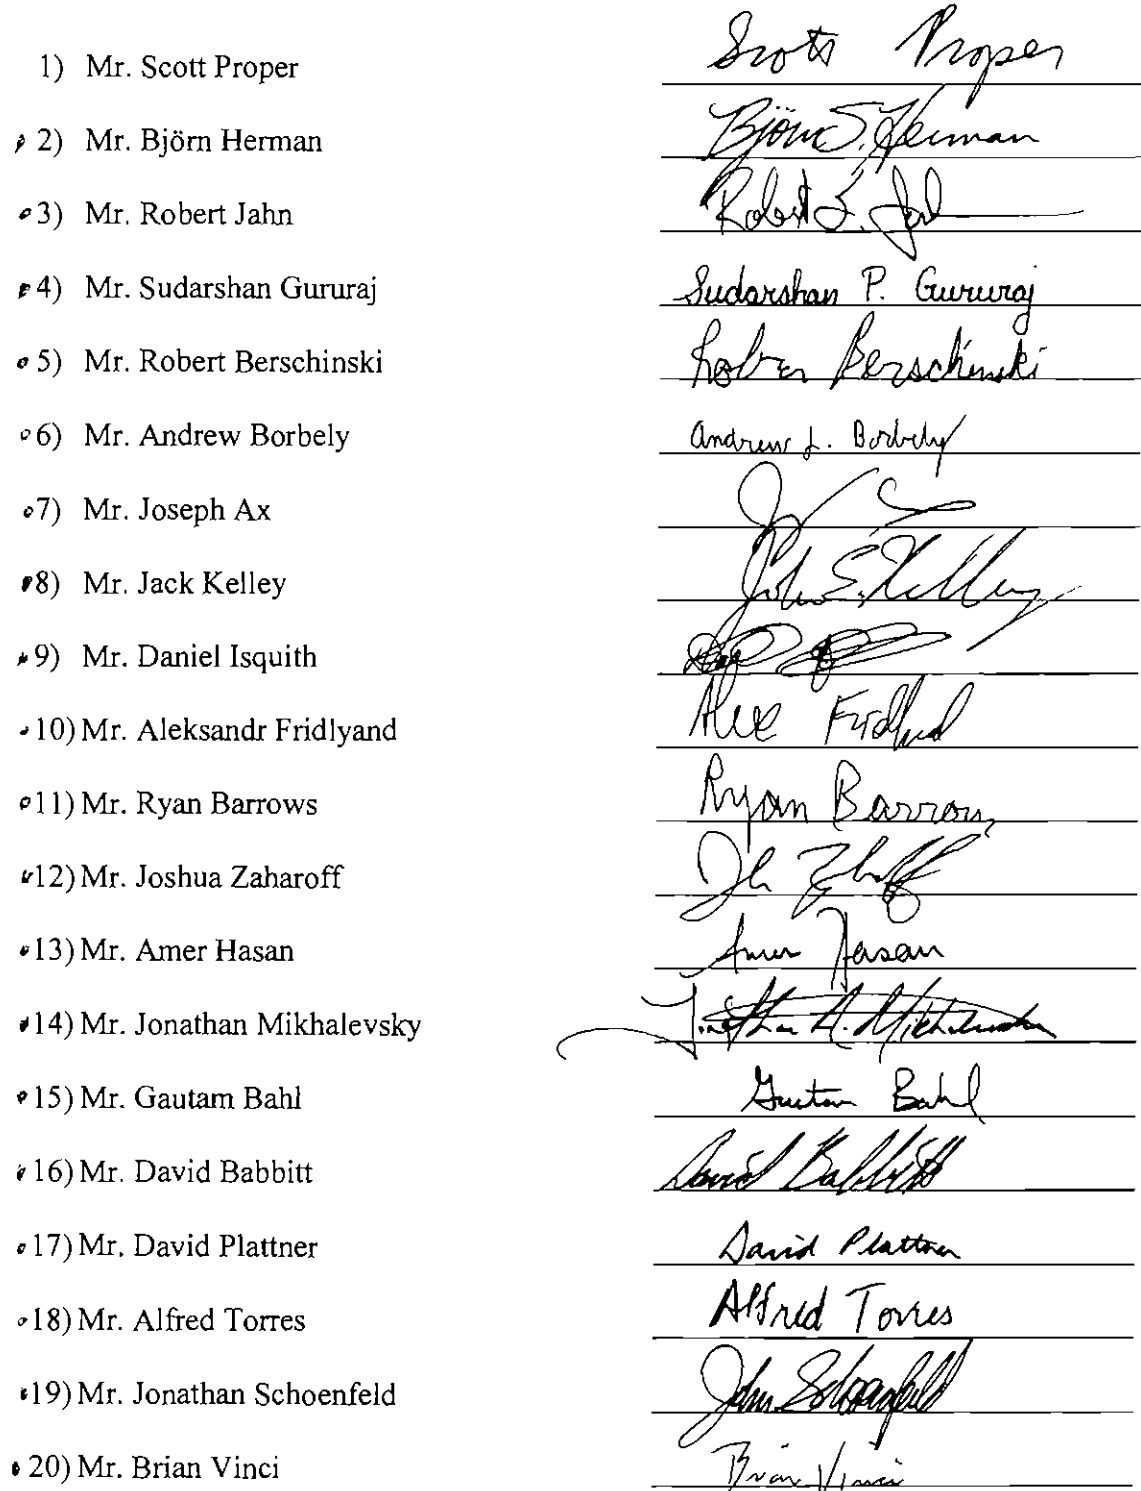 1) Mr. Scott Proper Scott Proper
2) Mr. Björn Herman Björn S. Herman
3) Mr. Robert Jahn Robert
4) Mr. Sudarshan Gururaj Sudarshan P. Gururaj
5) Mr. Robert Berschinski Robert Berschinski
6) Mr. Andrew Borbely Andrew L. Borbely
7) Mr. Joseph Ax
8) Mr. Jack Kelley John E. Kelley
9) Mr. Daniel Isquith
10) Mr. Aleksandr Fridlyand Alex
11) Mr. Ryan Barrows Ryan Barrows
12) Mr. Joshua Zaharoff
13) Mr. Amer Hasan Amer Hasan
14) Mr. Jonathan Mikhalevsky Jonathan A. Mikhalevsky
15) Mr. Gautam Bahl Gautam Bahl
16) Mr. David Babbitt David Babbitt
17) Mr. David Plattner David Plattner
18) Mr. Alfred Torres Alfred Torres
19) Mr. Jonathan Schoenfeld John Schoenfeld
20) Mr. Brian Vinci Brian Vinci